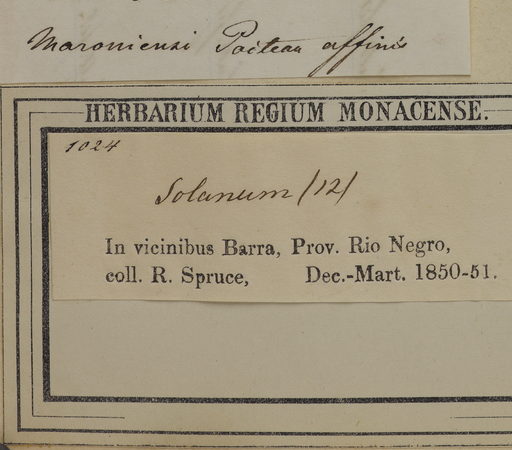 Maroniensi Poiteau affinis
HERBARIUM REGIUM MONACENSE.
1024
Solanum (12)
In vicinibus Barra, Prov. Rio Negro,
coll. R. Spruce, Dec.-Mart. 1850-51.